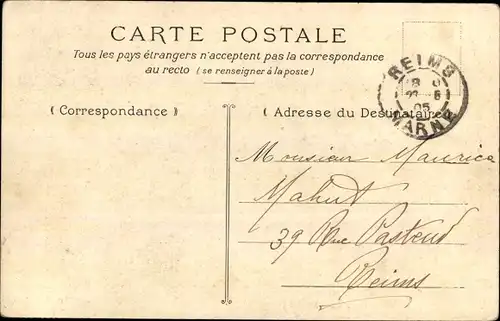 CARTE POSTALE
Tous les pays étrangers n'acceptent pas la correspondance
au recto (se renseigner à la poste)
(Correspondance)
(Adresse du Destinataire)
REIMS
05
MARNE
Monsieur Maurice
Mahut
39 Rue Pasteur
Reims